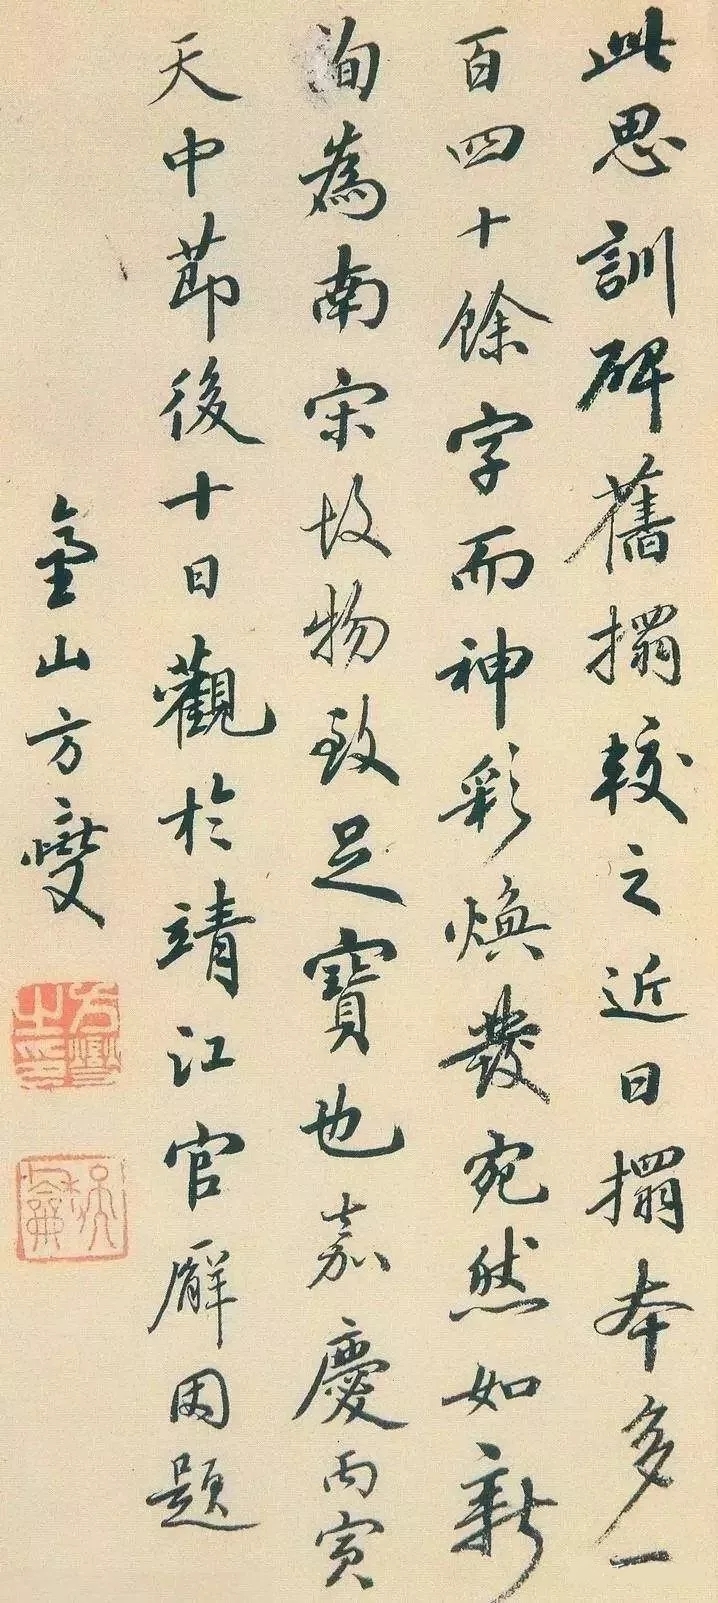 此思訓碑舊搨較之近日搨本多一
百四十餘字而神彩煥發宛然如新
洵為南宋故物致足寶也嘉慶丙寅
天中節後十日觀於靖江官廨因題
金山方燮
方燮之印